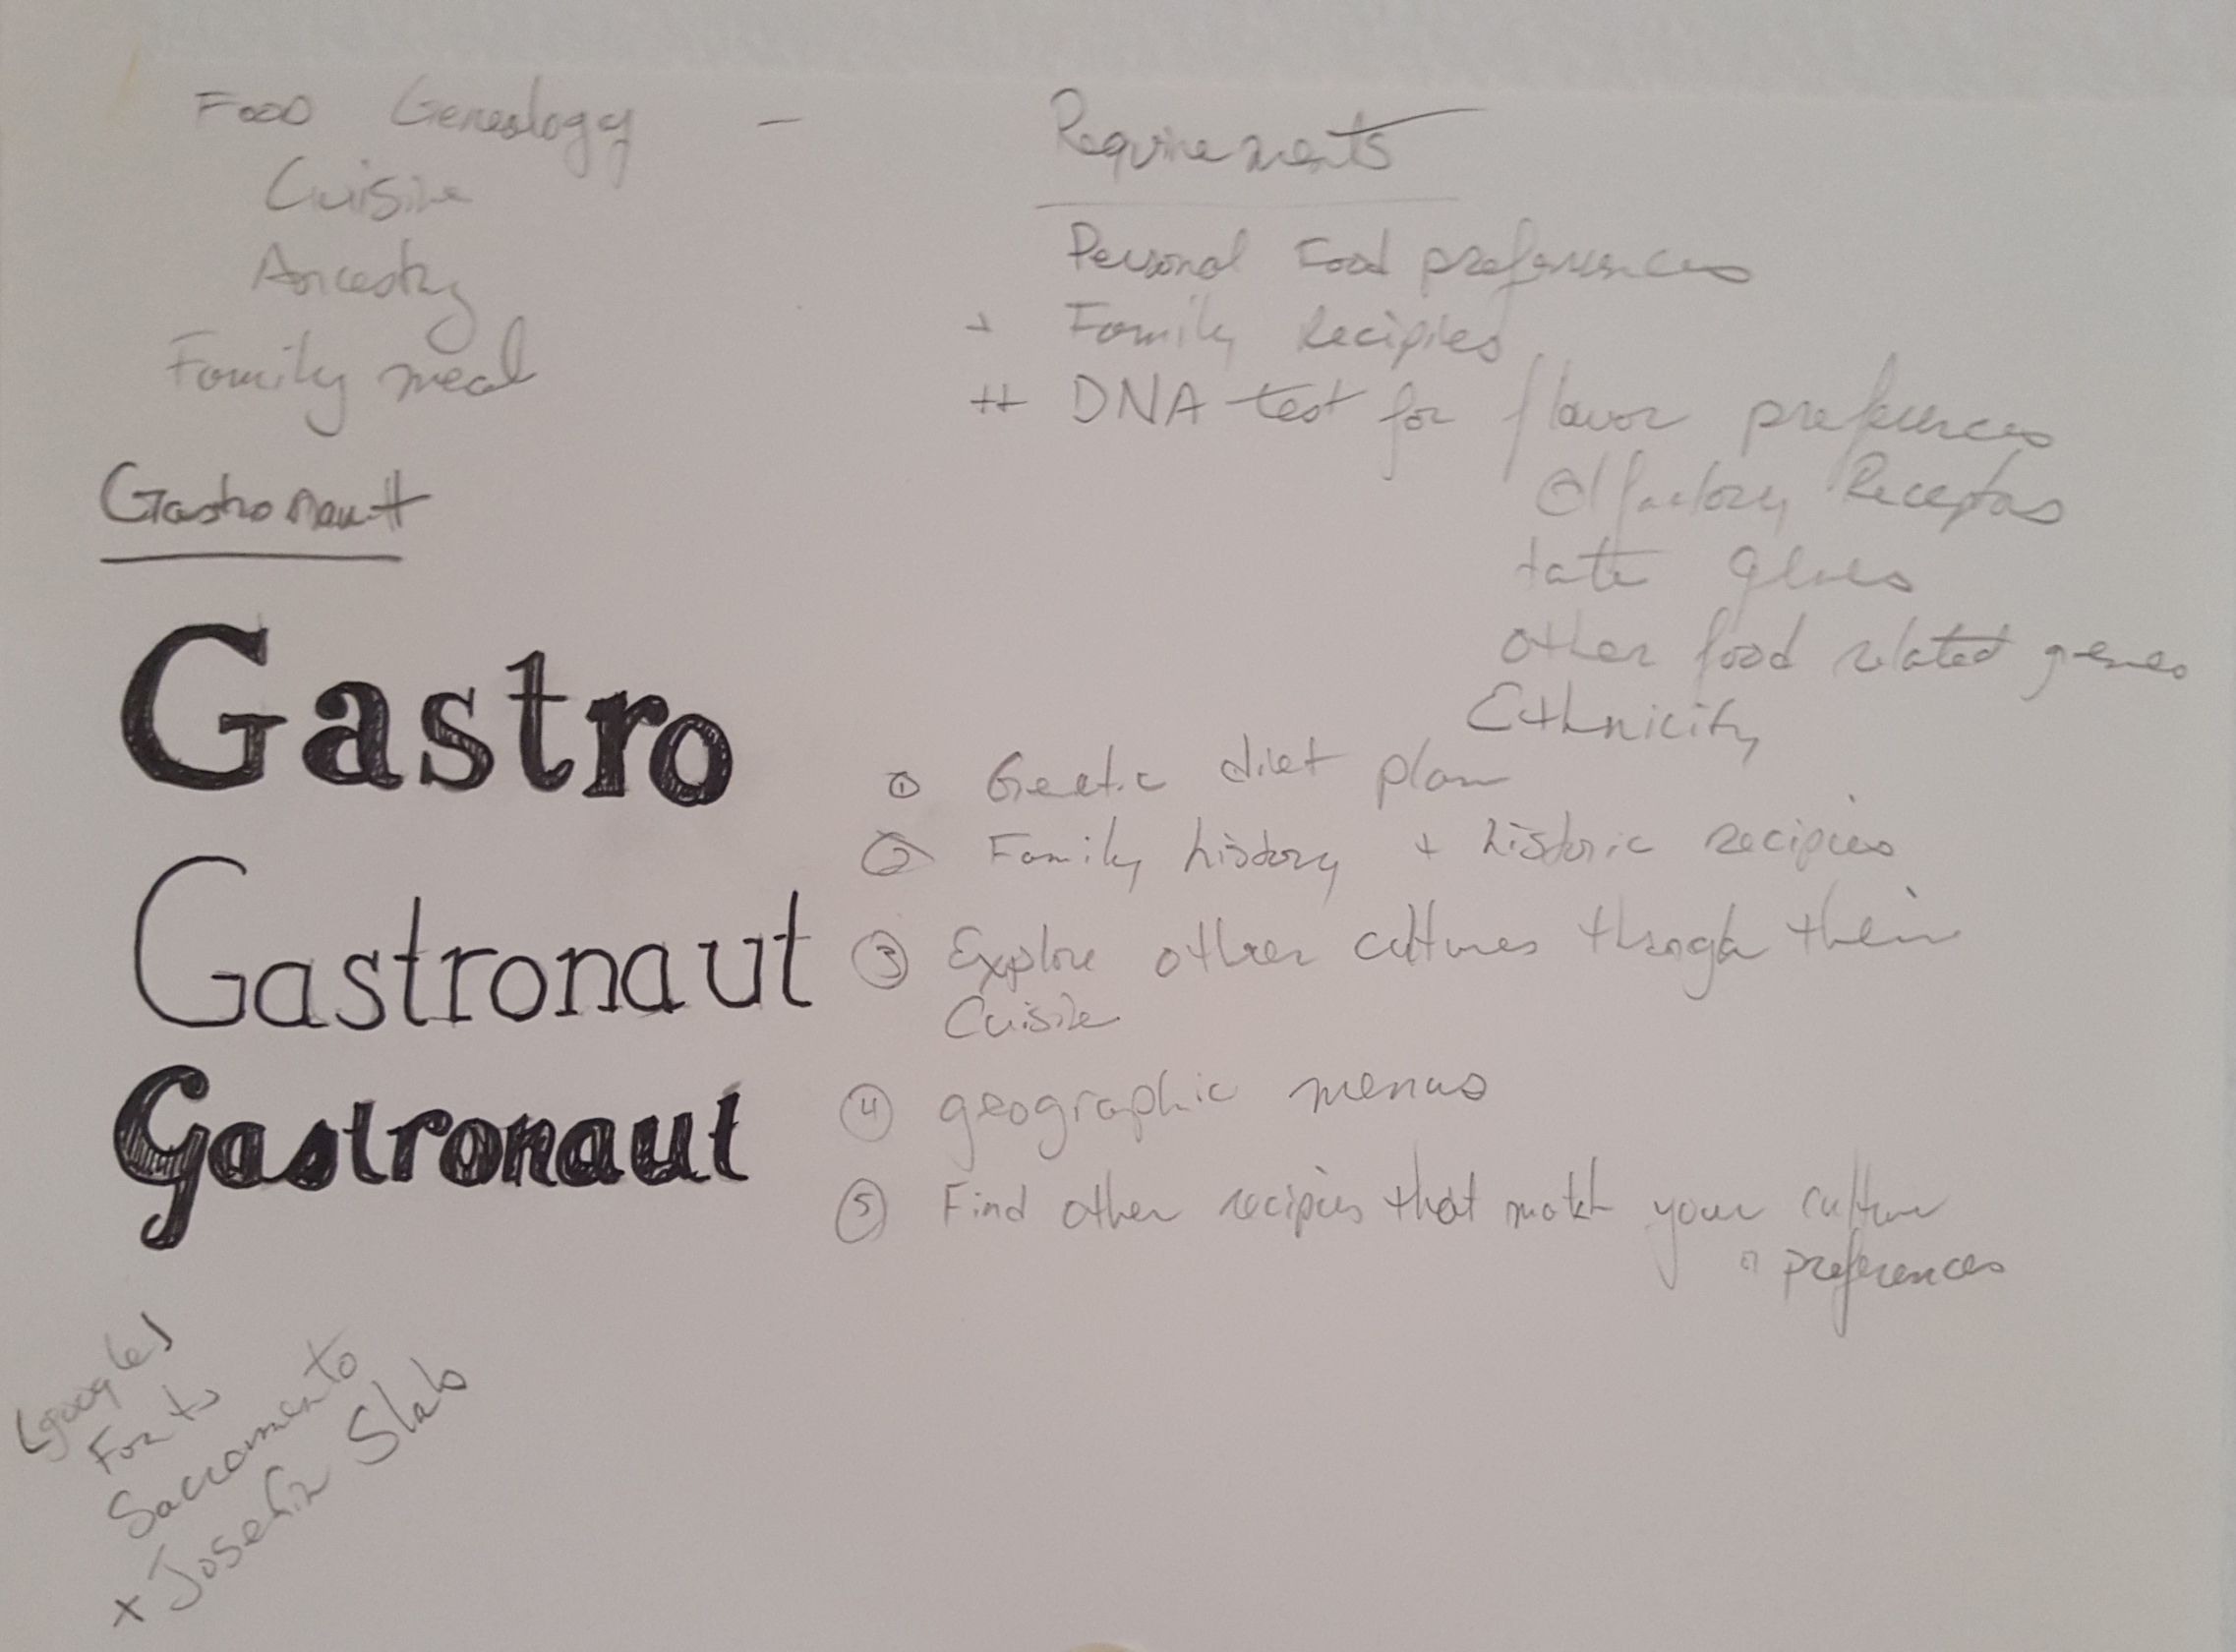 Food Geneology -
Cuisine
Ancestry
Family meal
Gastronaut
Gastro
Gastronaut
Gastronaut
Google
Fonts
Sacramento
x Josefin Slab
Requirements
Personal Food preferences
+ Family Recipies
++ DNA test for flavor preferences
Olfactory Receptors
taste genes
other food related genes
Ethnicity
① Genetic diet plan
② Family history + historic recipies
③ Explore other cultures through their
Cuisine
④ geographic menus
⑤ Find other recipies that match your culture
preferences